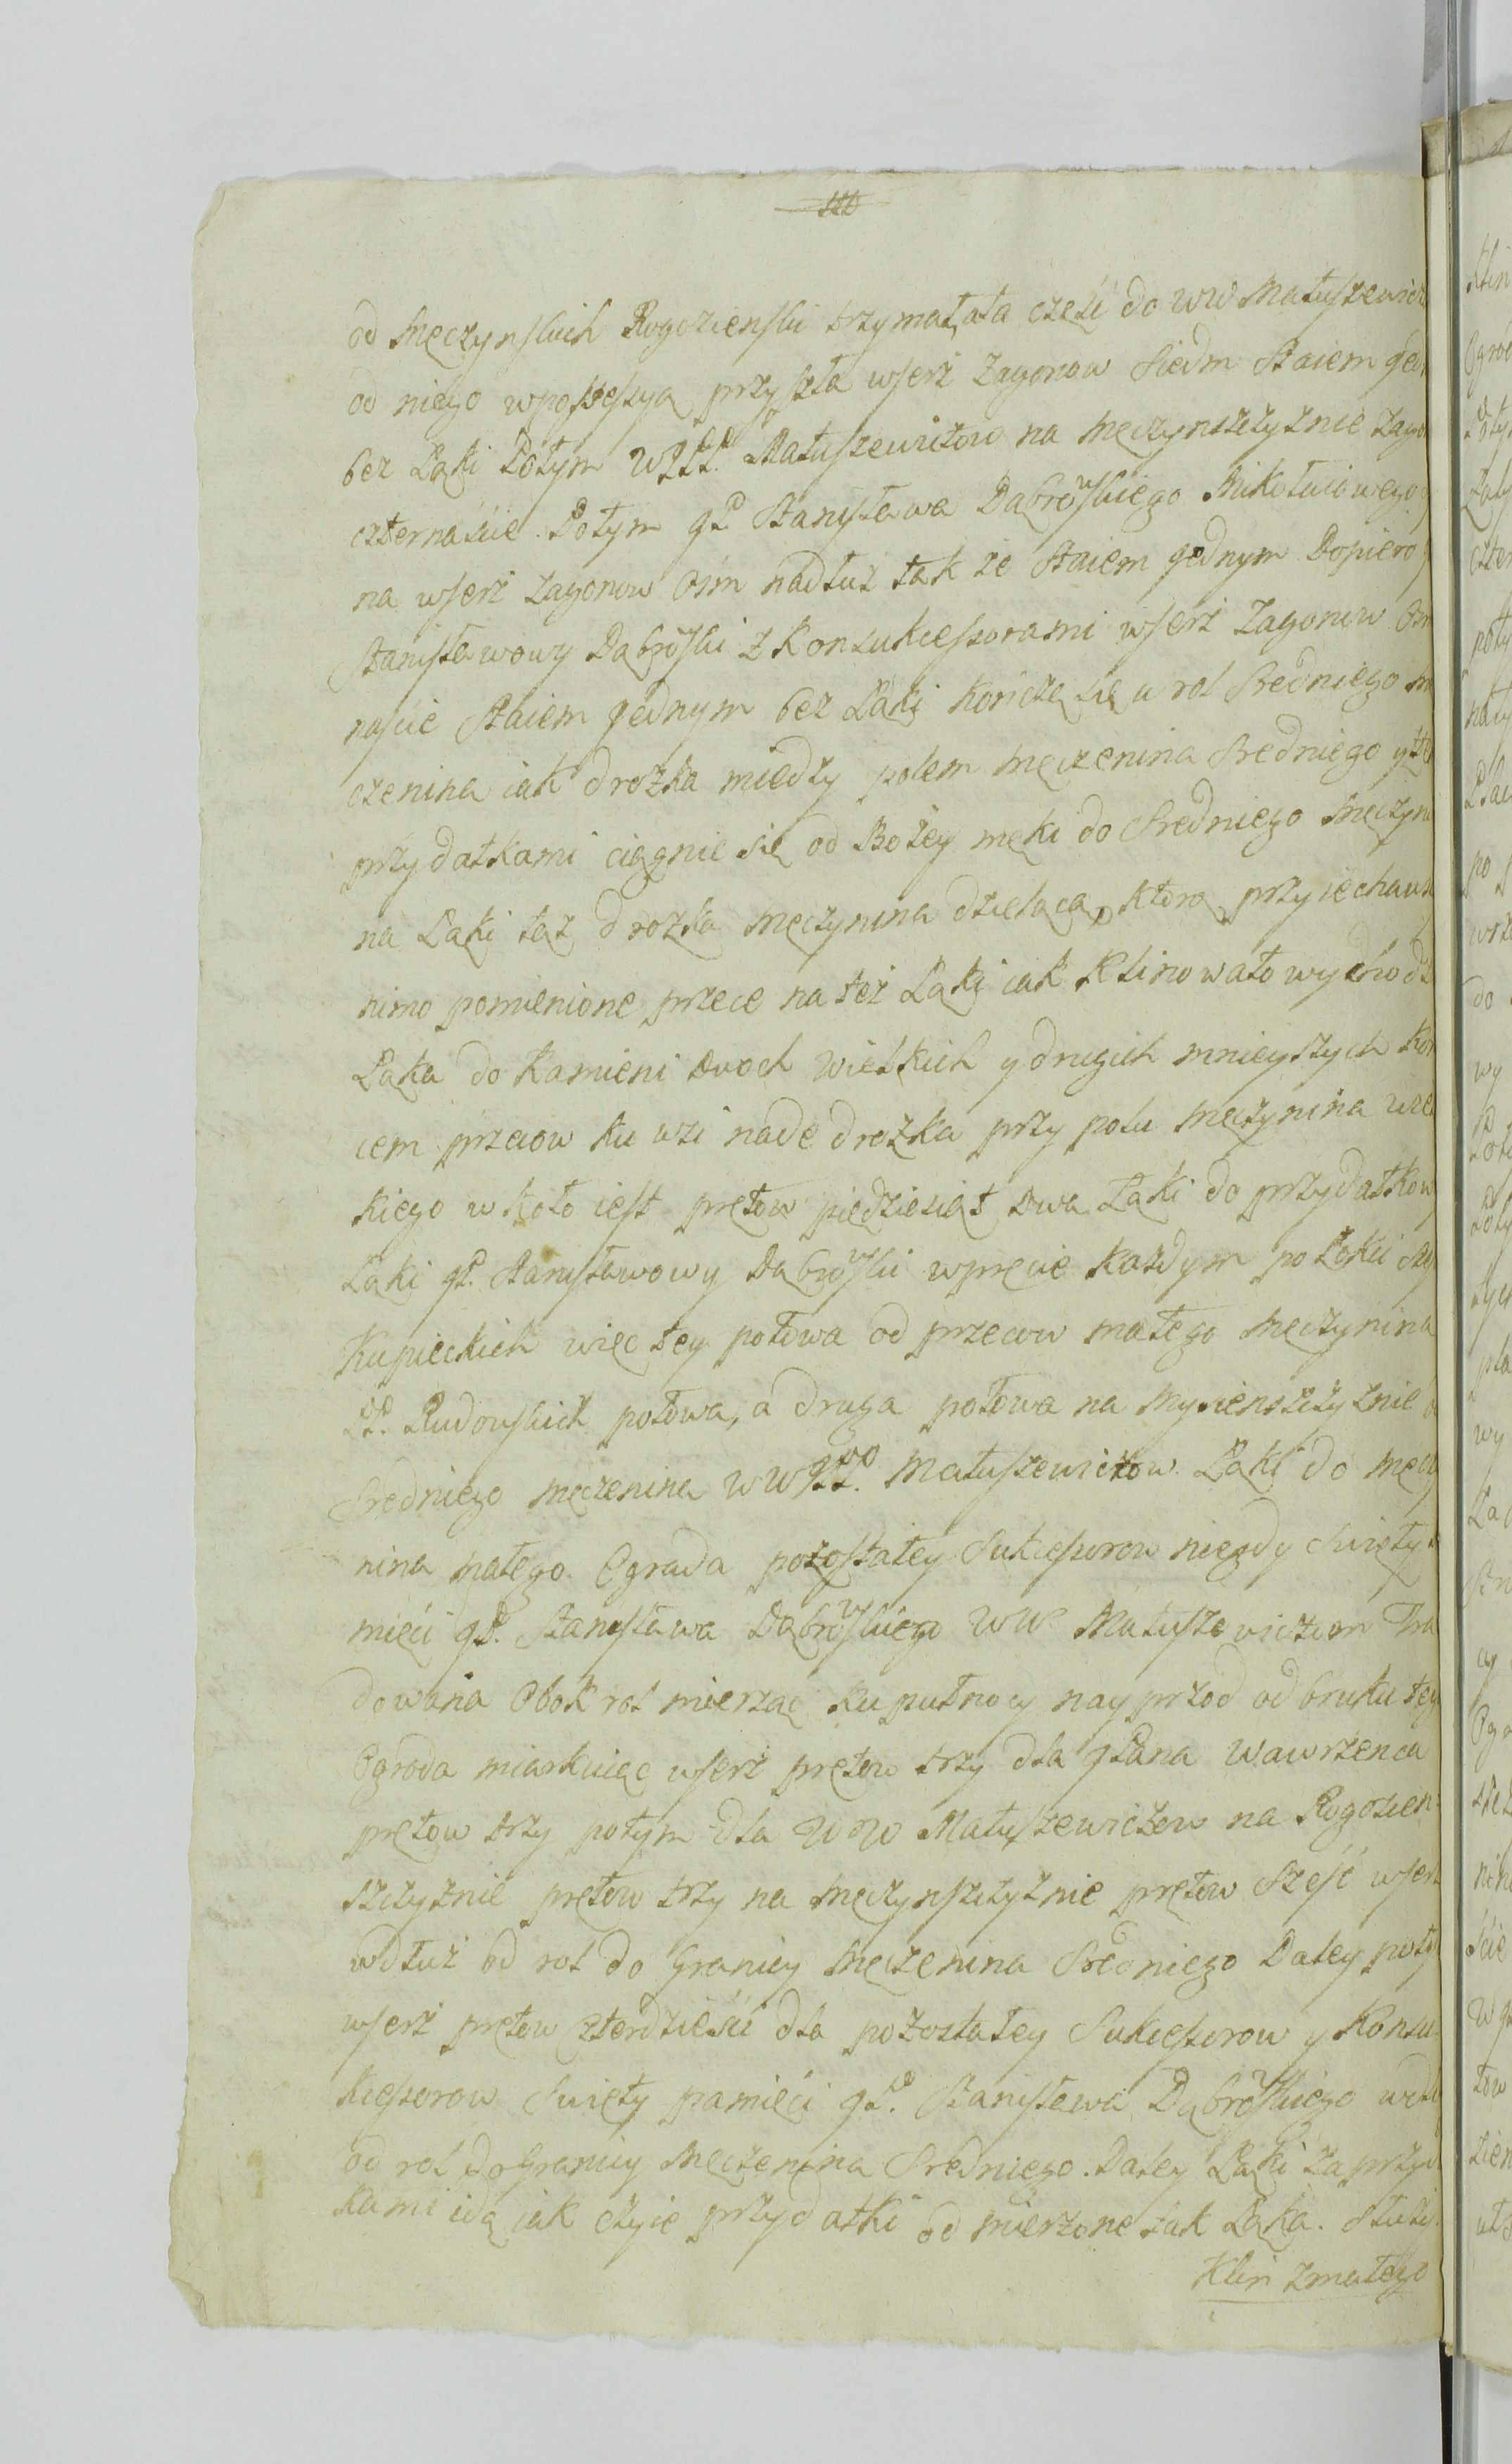 od Męczynskich Rogozienski trzymał, ata cześć do WW Matuszewicz
od niego wpossessyą przyszła wserz Zagonow Siedm Staiem ged
bez Łąki Potym WJPP. Matuszewiczow na Męczynszczyznie Zago
czternaście. Potym JP Stanisława Dąbrowskiego Mikołaiowego
na wserz Zagonow Osm nadłuż tak że Staiem jednym Dopiero
Stanisławowy Dąbrowski z Konsukcessorami wserz Zagonow Os
naście Staiem jednym bez Łąki kończą się u rol Sredniego Mę
czenina iak drożka między polem Męczenina Sredniego y
przydatkami ciągnie się od Bożey męki do Sredniego Męczyn
na Łąki taż drożka Męczynina dzieląca, ktorą przyiechaws
nimo pomienione przece na też Łąki iak Klinowato wychodz
Łąka do Kamieni Dwoch Wielkich y drugich mnieyszych Kon
cem przecow ku wsi nade drożka przy polu Męczynina Wiel
kiego w koło iest prętow piędziesiąt Dwa Łąki do przydatkow
Łąki JP. Stanisławowy Dąbrowski wpręcie każdym po Łokci
Kupieckich więc tey połowa od przecow małego Męczynina
PP. Rudowskich połowa, a druga połowa na Mysienszczyznie
Sredniego Męczenina WWJPP. Matuszewiczow. Łąki do Męczy
nina małego. Ograda pozostałey Sukcessorow niegdy Swięty
mięci JP. Stanisława Dąbrowskiego WW Matuszewiczom Tra
dowana Obok rol mierząc ku pułnocy nayprzod od bruku tey
Ogroda miarkuiąc wserz prętow trzy dla JPana Wawrzenca
prętow trzy potym dla WW Matuszewiczow na Rogozien-
szczyznie prętow trzy na Męczynszczyznie prętow Sześć wserz
wdłuż od rol do Granicy Męczenina Sredniego Daley poty
wserz prętow czterdzieści dla pozostałey Sukcessorow y Konsu
kcessorow Swięty pamięci JP. Stanisława Dąbrowskiego wdł
od rol do Granicy Męczenina Sredniego. Daley Łąki za przyd
kami idą iak czyie przydatki od mierzone tak Łąka.
Klin z małego